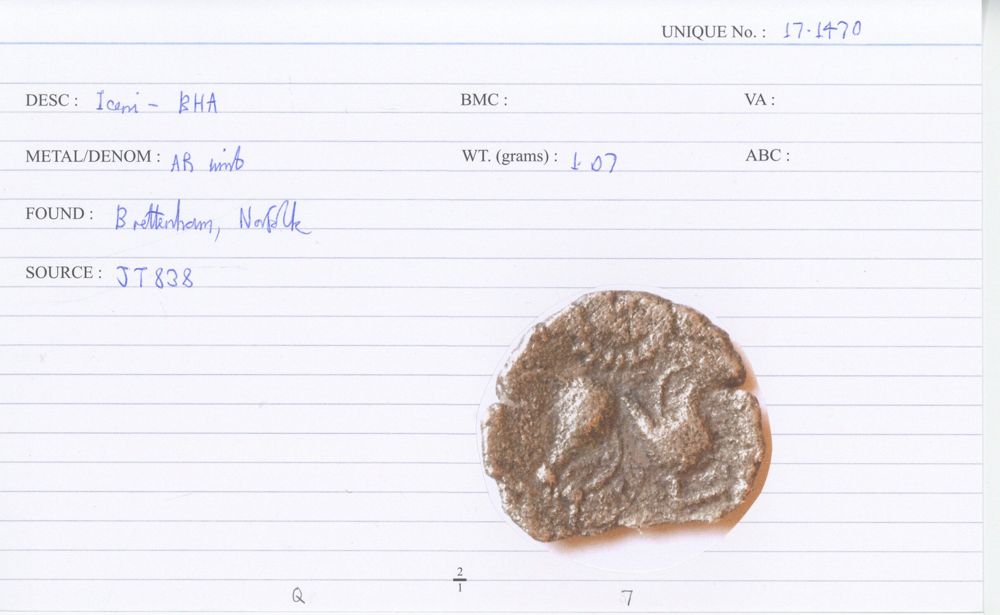 UNIQUE No. : 17.1470
DESC : Iceni - BHA BMC : VA :
METAL/DENOM : AR unit WT. (grams) : 1.07 ABC :
FOUND : Brettenham, Norfolk
SOURCE : JT838
2
Q 1 7